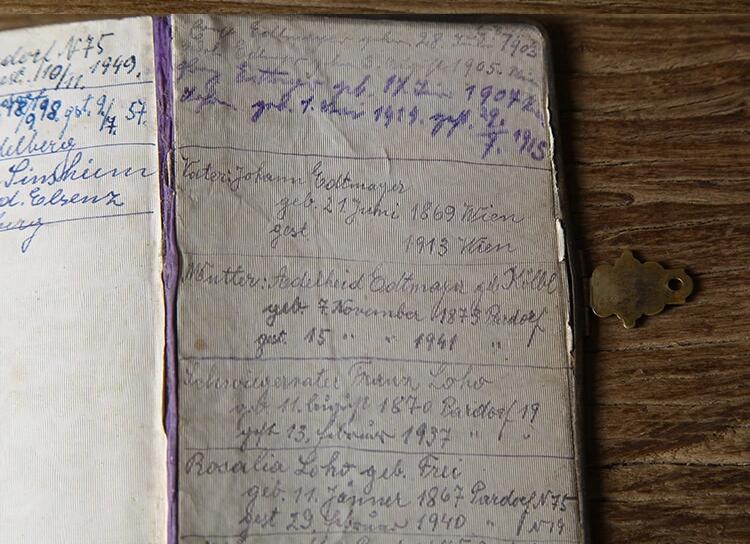 dorf N75
gest. 10/11. 1949.
1898 gst. 9/7. 57.
delberg
Sinsheim
d. Elsenz
burg
geb. 28. Juni 1903
1905.
geb. 17. Juni 1907
geb. 1. Juni 1914. gest. 29./7. 1915
Vater: Johann Edtmayer
geb. 21 Juni 1869 Wien
gest 1913 Wien
Mutter: Adelheid Edtmayer geb. Kölbl
geb. 7 November 1873 Pardorf
gest. 15 " " 1941 "
Schwiegervater Franz Loho
geb. 11. August 1870 Pardorf 19
gest 13. Februar 1937 " "
Rosalia Loho geb. Frei
geb. 11. Jänner 1867 Pardorf N75
gest 29. Februar 1940 " N19